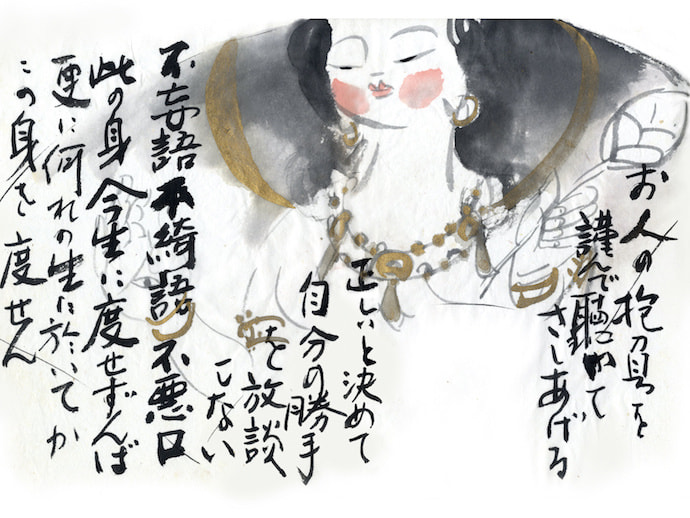 お人の抱負を
謹んで聴いて
さしあげる
正しいと決めて
自分の勝手
を放談
しない
不妄語不綺語不悪口
此の身今生に度せずんば
更に何れの生に於いてか
この身を度せん